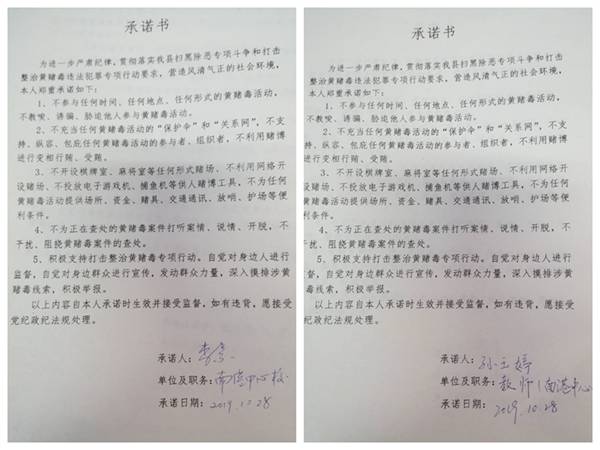 承诺书
为进一步严肃纪律，贯彻落实我县扫黑除恶专项斗争和打击
整治黄赌毒违法犯罪专项行动要求，营造风清气正的社会环境，
本人郑重承诺如下：
1、不参与任何时间、任何地点、任何形式的黄赌毒活动，
不教唆、诱骗、胁迫他人参与黄赌毒活动。
2、不充当任何黄赌毒活动的“保护伞”和“关系网”，不支
持、纵容、包庇任何黄赌毒活动的参与者、组织者，不利用赌博
进行变相行贿、受贿。
3、不开设棋牌室、麻将室等任何形式赌场、不利用网络开
设赌场、不投放电子游戏机、捕鱼机等供人赌博工具，不为任何
黄赌毒活动提供场所、资金、赌具、交通通讯、放哨、护场等便
利条件。
4、不为正在查处的黄赌毒案件打听案情、说情、开脱，不
干扰、阻挠黄赌毒案件的查处。
5、积极支持打击整治黄赌毒专项行动。自觉对身边人进行
监督，自觉对身边群众进行宣传，发动群众力量，深入摸排涉黄
赌毒线索，积极举报。
以上内容自本人承诺时生效并接受监督，如有违背，愿接受
党纪政纪法规处理。
承诺人：
单位及职务：南港中心校
承诺日期：2019.10.28
承诺书
为进一步严肃纪律，贯彻落实我县扫黑除恶专项斗争和打击
整治黄赌毒违法犯罪专项行动要求，营造风清气正的社会环境，
本人郑重承诺如下：
1、不参与任何时间、任何地点、任何形式的黄赌毒活动，
不教唆、诱骗、胁迫他人参与黄赌毒活动。
2、不充当任何黄赌毒活动的“保护伞”和“关系网”，不支
持、纵容、包庇任何黄赌毒活动的参与者、组织者，不利用赌博
进行变相行贿、受贿。
3、不开设棋牌室、麻将室等任何形式赌场、不利用网络开
设赌场、不投放电子游戏机、捕鱼机等供人赌博工具，不为任何
黄赌毒活动提供场所、资金、赌具、交通通讯、放哨、护场等便
利条件。
4、不为正在查处的黄赌毒案件打听案情、说情、开脱，不
干扰、阻挠黄赌毒案件的查处。
5、积极支持打击整治黄赌毒专项行动。自觉对身边人进行
监督，自觉对身边群众进行宣传，发动群众力量，深入摸排涉黄
赌毒线索，积极举报。
以上内容自本人承诺时生效并接受监督，如有违背，愿接受
党纪政纪法规处理。
承诺人：孙玉婷
单位及职务：教师/南港中心
承诺日期：2019.10.28